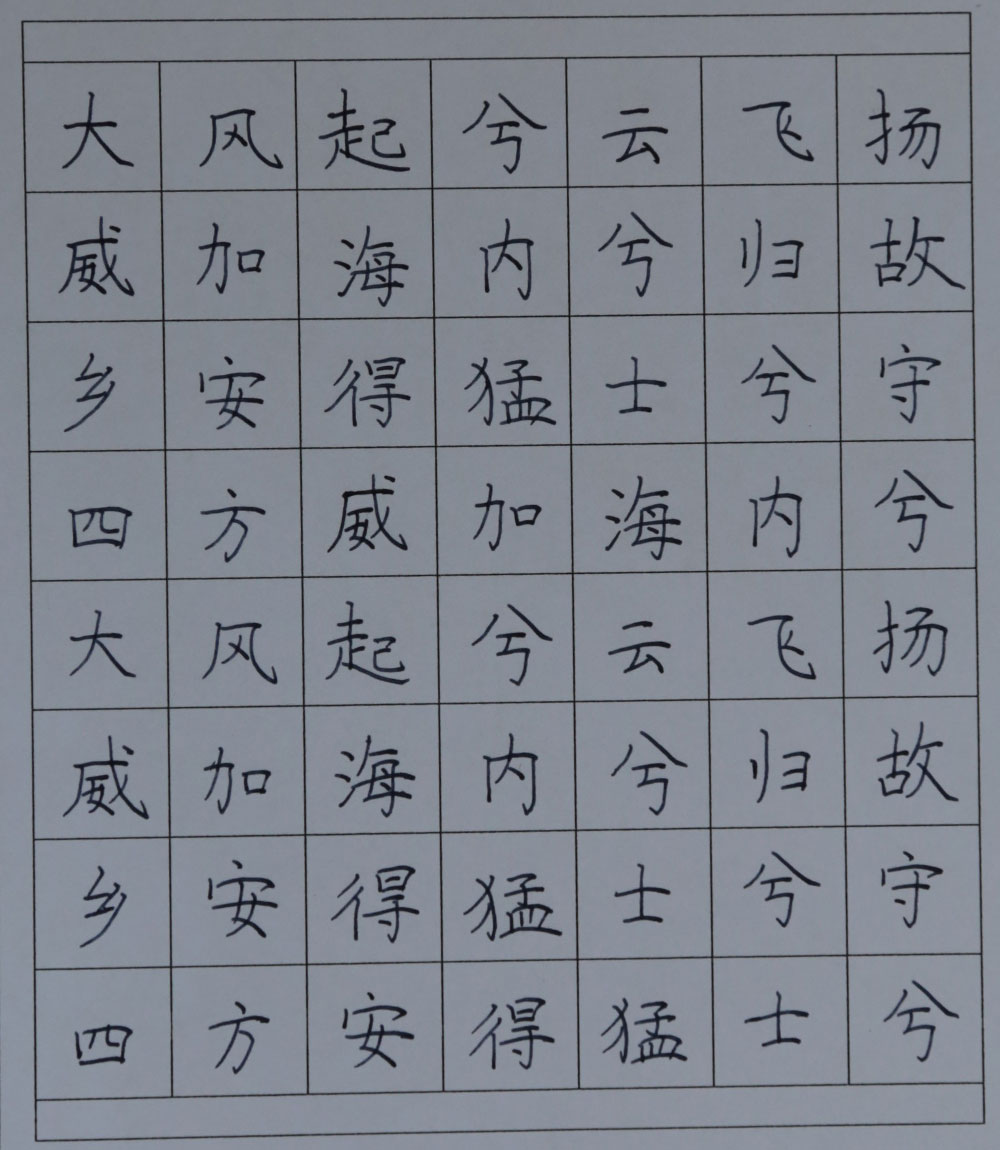 大风起兮云飞扬
威加海内兮归故
乡安得猛士兮守
四方威加海内兮
大风起兮云飞扬
威加海内兮归故
乡安得猛士兮守
四方安得猛士兮